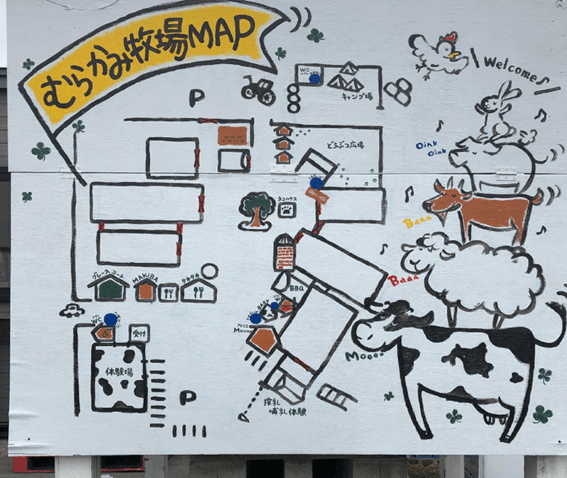 むらかみ牧場MAP
Welcome♪
P
WC
キャンプ場
どうぶつ広場
Oink
Oink
Baaa
Baaa
BBQ
MAKIBA
WC
受付
Mooo
体験場
P
搾乳
哺乳体験